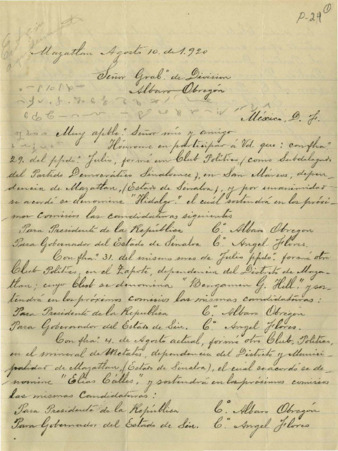 P-29
Mazatlan Agosto 10 de 1,920
Señor Gral. de Division
Albaro Obregón
México, D. F.
Muy apble. Señor mio y amigo
Hónrome en participar á Vd. que: con fha.
29 del ppdo. Julio, formé un Club Politico, (como Subdelegado
del Partido Democratico Sinaloense), en San Marcos, depen-
dencia de Mazatlan, (Estado de Sinaloa), y por unanimidad
se acordó se denomine "Hidalgo" el cuál sostendrá en los próxi-
mos Comicios las candidaturas siguientes
Para Presidente de la República C. Albaro Obregon
Para Gobernador del Estado de Sinaloa C. Angel Flores.
Con fha. 31 del mismo mes de Julio ppdo. formé otro
Club Politico, en el Zapote, dependencia del Distrito de Maza-
tlan; cuyo Club se denomina "Benjamen G. Hill" y sos-
tendrá en los próximos comicios las mismas candidaturas:
Para Presidente de la República C. Albaro Obregon
Para Gobernador del Estado de Sin. C. Angel Flores.
Con fha. 4 de Agosto actual, formé otro Club Politico,
en el mineral de Metates, dependencia del Distrito y Munici-
palidad de Mazatlan, (Estado de Sinaloa), el cual se acordó se de-
nomine "Elias Calles," y sostendrá en los próximos comicios
las mismas Candidaturas:
Para Presidente de la República C. Albaro Obregón
Para Gobernador del Estado de Sin. C. Angel Flores